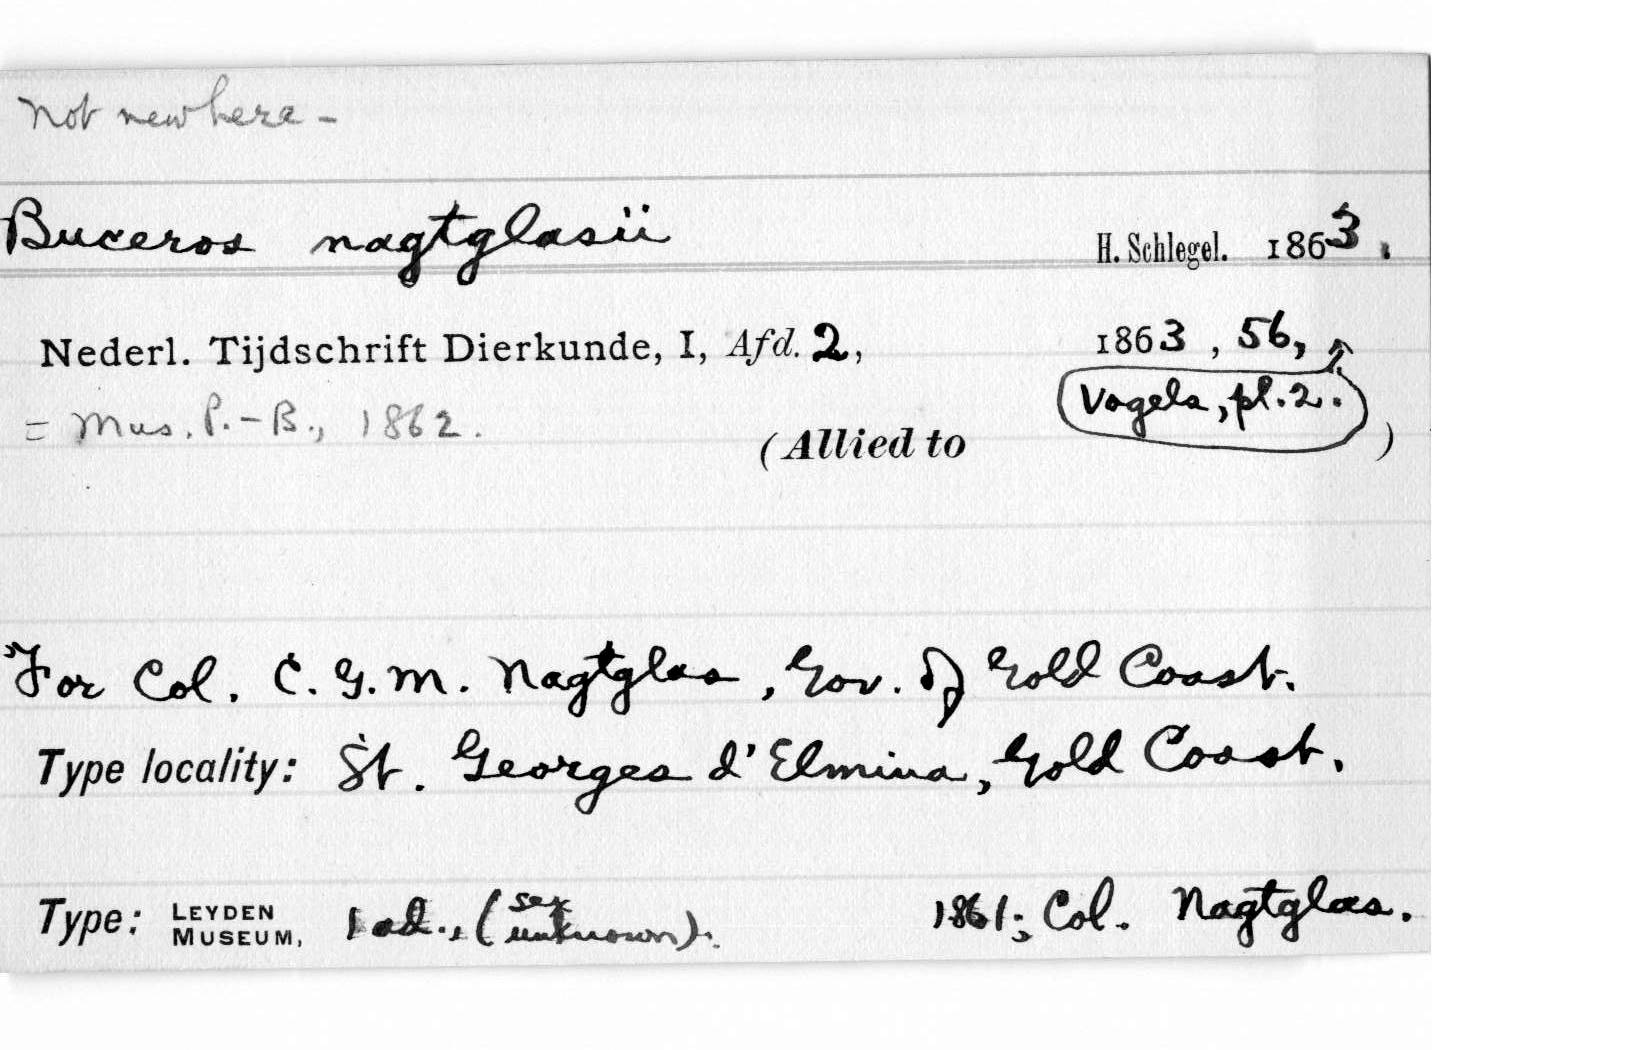 Not new here -
Buceros nagtglasii H. Schlegel. 1863.
Nederl. Tijdschrift Dierkunde, I, Afd. 2, 1863, 56,
Vogels, pl. 2.
= Mus. P.-B., 1862.
(Allied to )
For Col. C. G. M. Nagtglas, Gov. of Gold Coast.
Type locality: St. Georges d'Elmina, Gold Coast.
Type: LEYDEN MUSEUM, 1 ad., (sex unknown). 1861; Col. Nagtglas.